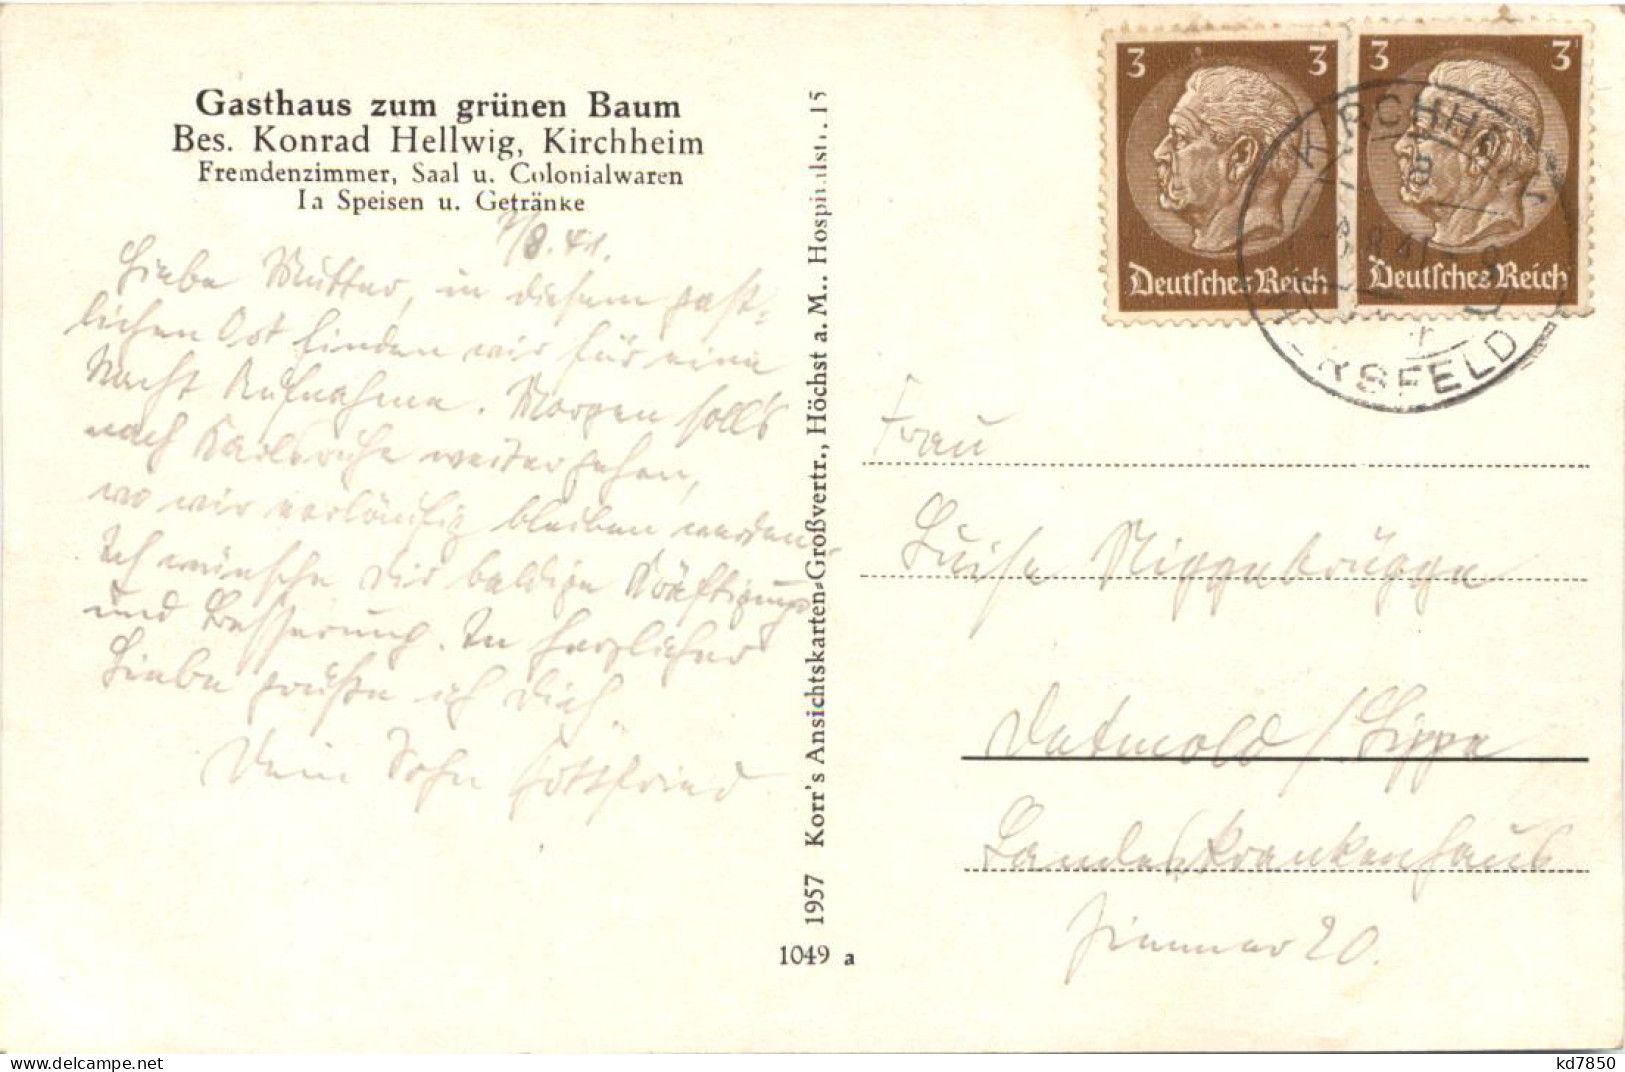 Gasthaus zum grünen Baum
Bes. Konrad Hellwig, Kirchheim
Fremdenzimmer, Saal u. Colonialwaren
Ia Speisen u. Getränke
7/8.41.
Liebe Mutter, in diesem gast-
lichen Ort finden wir für eine
Nacht Aufnahme. Morgen soll's
nach Karlsruhe weitergehen,
wo wir vorläufig bleiben werden.
Ich wünsche Dir baldige Kräftigung
und Besserung. In herzlicher
Liebe grüße ich Dich.
Dein Sohn Gottfried
1957 Korr's Ansichtskarten-Großvertr., Höchst a. M., Hospitalstr. 15
1049 a
3 3
Deutsches Reich
3 3
Deutsches Reich
KIRCHHEIM
HERSFELD
Frau
Luise Niggebrügge
Detmold / Lippe
Landeskrankenhaus
Zimmer 20.
kd7850